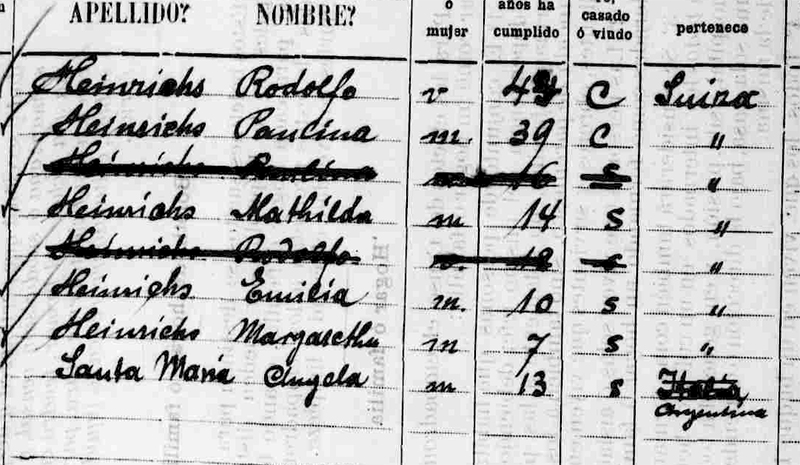 APELLIDO? NOMBRE? ó mujer años ha cumplido casado ó viudo pertenece
Heinrichs Rodolfo v C Suiza
Heinrichs Paulina m. 39 C "
Heinrichs Paulina 16 s "
Heinrichs Mathilda m 14 s "
Heinrichs Rodolfo v. 12 s "
Heinrichs Emilia m. 10 s "
Heinrichs Margaretha m 7 s "
Santa Maria Angela m 13 s Italia
Argentina